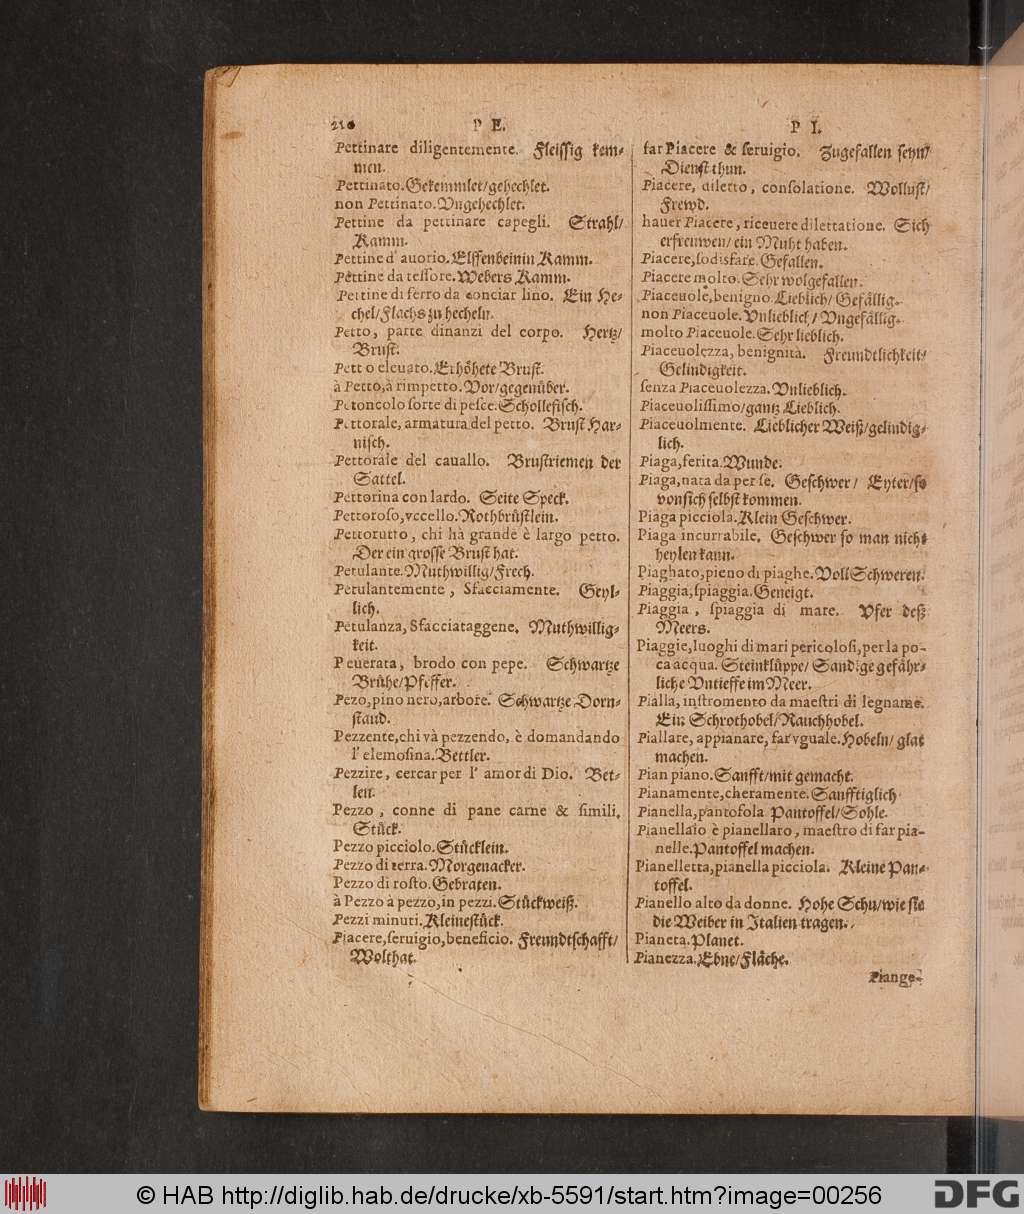 210 P E.
Pettinare diligentemente. Fleiſſig kem-
men.
Pettinato. Gekemmlet/gehechlet.
non Pettinato. Vngehechlet.
Pettine da pettinare capegli. Strahl/
Kamm.
Pettine d' auorio. Elffenbeinin Kamm.
Pettine da teſſore. Webers Kamm.
Pettine di ferro da conciar lino. Ein He-
chel/Flachs zu hecheln.
Petto, parte dinanzi del corpo. Hertz/
Bruſt.
Petto eleuato. Erhöhete Bruſt.
à Petto, à rimpetto. Vor/gegenüber.
Petoncolo ſorte di peſce. Schollefiſch.
Pettorale, armatura del petto. Bruſt Har-
niſch.
Pettorale del cauallo. Bruſtriemen der
Sattel.
Pettorina con lardo. Seite Speck.
Pettoroſo, vccello. Rothbrüſtlein.
Pettoruto, chi hà grande è largo petto.
Der ein groſſe Bruſt hat.
Petulante. Muthwillig/Frech.
Petulantemente, Sfacciamente. Geyl-
lich.
Petulanza, Sfacciataggene. Muthwillig-
keit.
Peuerata, brodo con pepe. Schwartze
Brühe/Pfeffer.
Pezo, pino nero, arbore. Schwartze Dorn-
ſtaud.
Pezzente, chi và pezzendo, è domandando
l' elemoſina. Bettler.
Pezzire, cercar per l' amor di Dio. Bet-
len.
Pezzo, conne di pane carne & ſimili.
Stück.
Pezzo picciolo. Stücklein.
Pezzo di terra. Morgenacker.
Pezzo di roſto. Gebraten.
à Pezzo à pezzo, in pezzi. Stückweiß.
Pezzi minuti. Kleineſtück.
Piacere, ſeruigio, beneficio. Freundtſchafft/
Wolthat.
P I.
far Piacere & ſeruigio. Zugefallen ſeyn/
Dienſt thun.
Piacere, diletto, conſolatione. Wolluſt/
Frewd.
hauer Piacere, riceuere dilettatione. Sich
erfreuwen/ein Muht haben.
Piacere, ſodisfare. Gefallen.
Piacere molto. Sehr wolgefallen.
Piaceuole, benigno. Lieblich/Gefällig.
non Piaceuole. Vnlieblich/Vngefällig.
molto Piaceuole. Sehr lieblich.
Piaceuolezza, benignità. Freundtlichkeit/
Gelindigkeit.
ſenza Piaceuolezza. Vnlieblich.
Piaceuoliſſimo/gantz Lieblich.
Piaceuolmente. Lieblicher Weiß/gelindig-
lich.
Piaga, ferita. Wunde.
Piaga, nata da per ſe. Geſchwer/ Eyter/ſo
vonſich ſelbſt kommen.
Piaga picciola. Klein Geſchwer.
Piaga incurrabile. Geſchwer ſo man nicht
heylen kann.
Piaghato, pieno di piaghe. Voll Schweren.
Piaggia, ſpiaggia. Geneigt.
Piaggia, ſpiaggia di mare. Vfer deß
Meers.
Piaggie, luoghi di mari pericoloſi, per la po-
ca acqua. Steinklüppe/ Sandige gefähr-
liche Vntieffe im Meer.
Pialla, inſtromento da maeſtri di legname.
Ein Schrothobel/Rauchhobel.
Piallare, appianare, far vguale. Hobeln/ glat
machen.
Pian piano. Sanfft/mit gemacht.
Pianamente, cheramente. Sanfftiglich
Pianella, pantofola Pantoffel/Sohle.
Pianellaio è pianellaro, maeſtro di far pia-
nelle. Pantoffel machen.
Pianelletta, pianella picciola. Kleine Pan-
toffel.
Pianello alto da donne. Hohe Schu/wie ſie
die Weiber in Italien tragen.
Pianeta. Planet.
Pianezza. Ebne/Fläche.
Piange-
© HAB http://diglib.hab.de/drucke/xb-5591/start.htm?image=00256
DFG